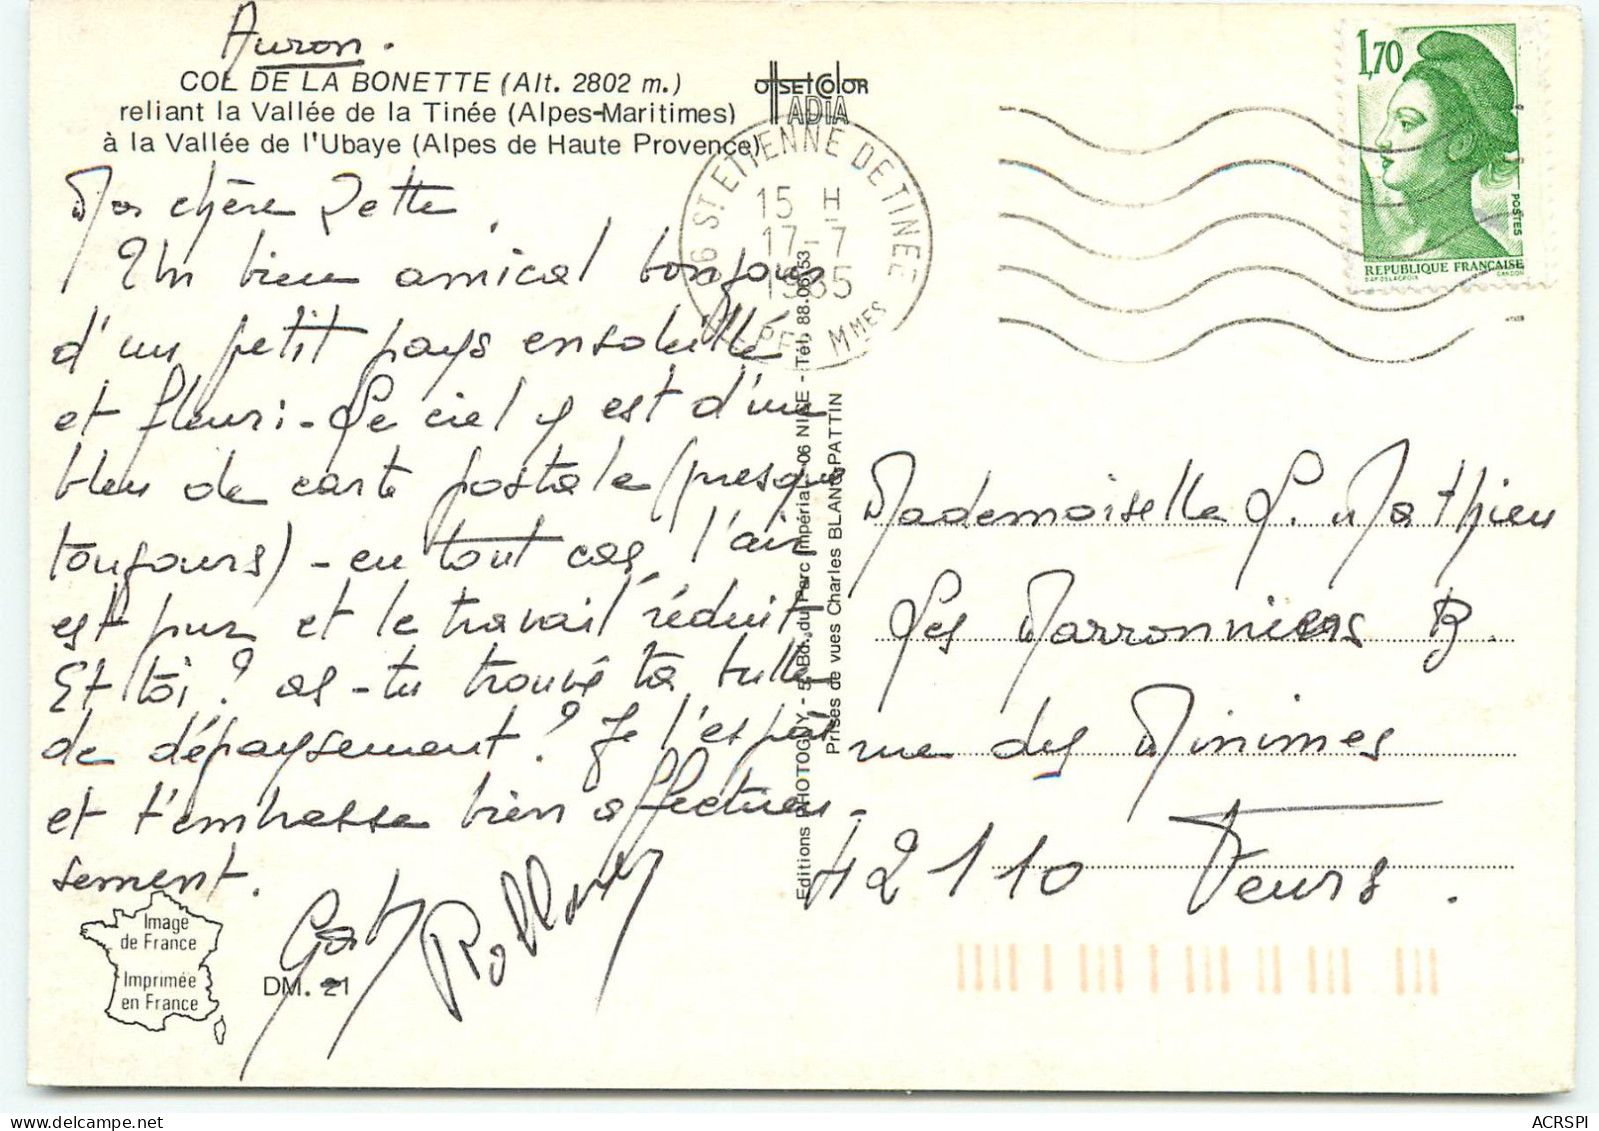 Auron.
COL DE LA BONETTE (Alt. 2802 m.)
reliant la Vallée de la Tinée (Alpes-Maritimes)
à la Vallée de l'Ubaye (Alpes de Haute Provence)
OffsetColor
ADIA
Ma chère Zette,
Un bien amical bonjour
d'un petit pays ensoleillé
et fleuri - Le ciel y est d'un
bleu de carte postale (presque
toujours) - en tout cas, l'air
est pur et le travail réduit.
Et toi ? as-tu trouvé ta bulle
de dépaysement ? Je l'espère
et t'embrasse bien affectueu-
sement.
Gaby
Image
de France
Imprimée
en France
DM. 21
Editions PHOTOGUY - 5, Bd. du Parc Impérial - 06 NICE - Tél. 88.06.53
Prises de vues Charles BLANC-PATTIN
06 ST ETIENNE DE TINEE
15 H
17-7
1985
ALPES MMES
1,70
POSTES
REPUBLIQUE FRANÇAISE
D'AP. DELACROIX GANDON
Mademoiselle L. Mathieu
Les Marronniers B.
rue des Minimes
42110 Feurs.
ACRSPI